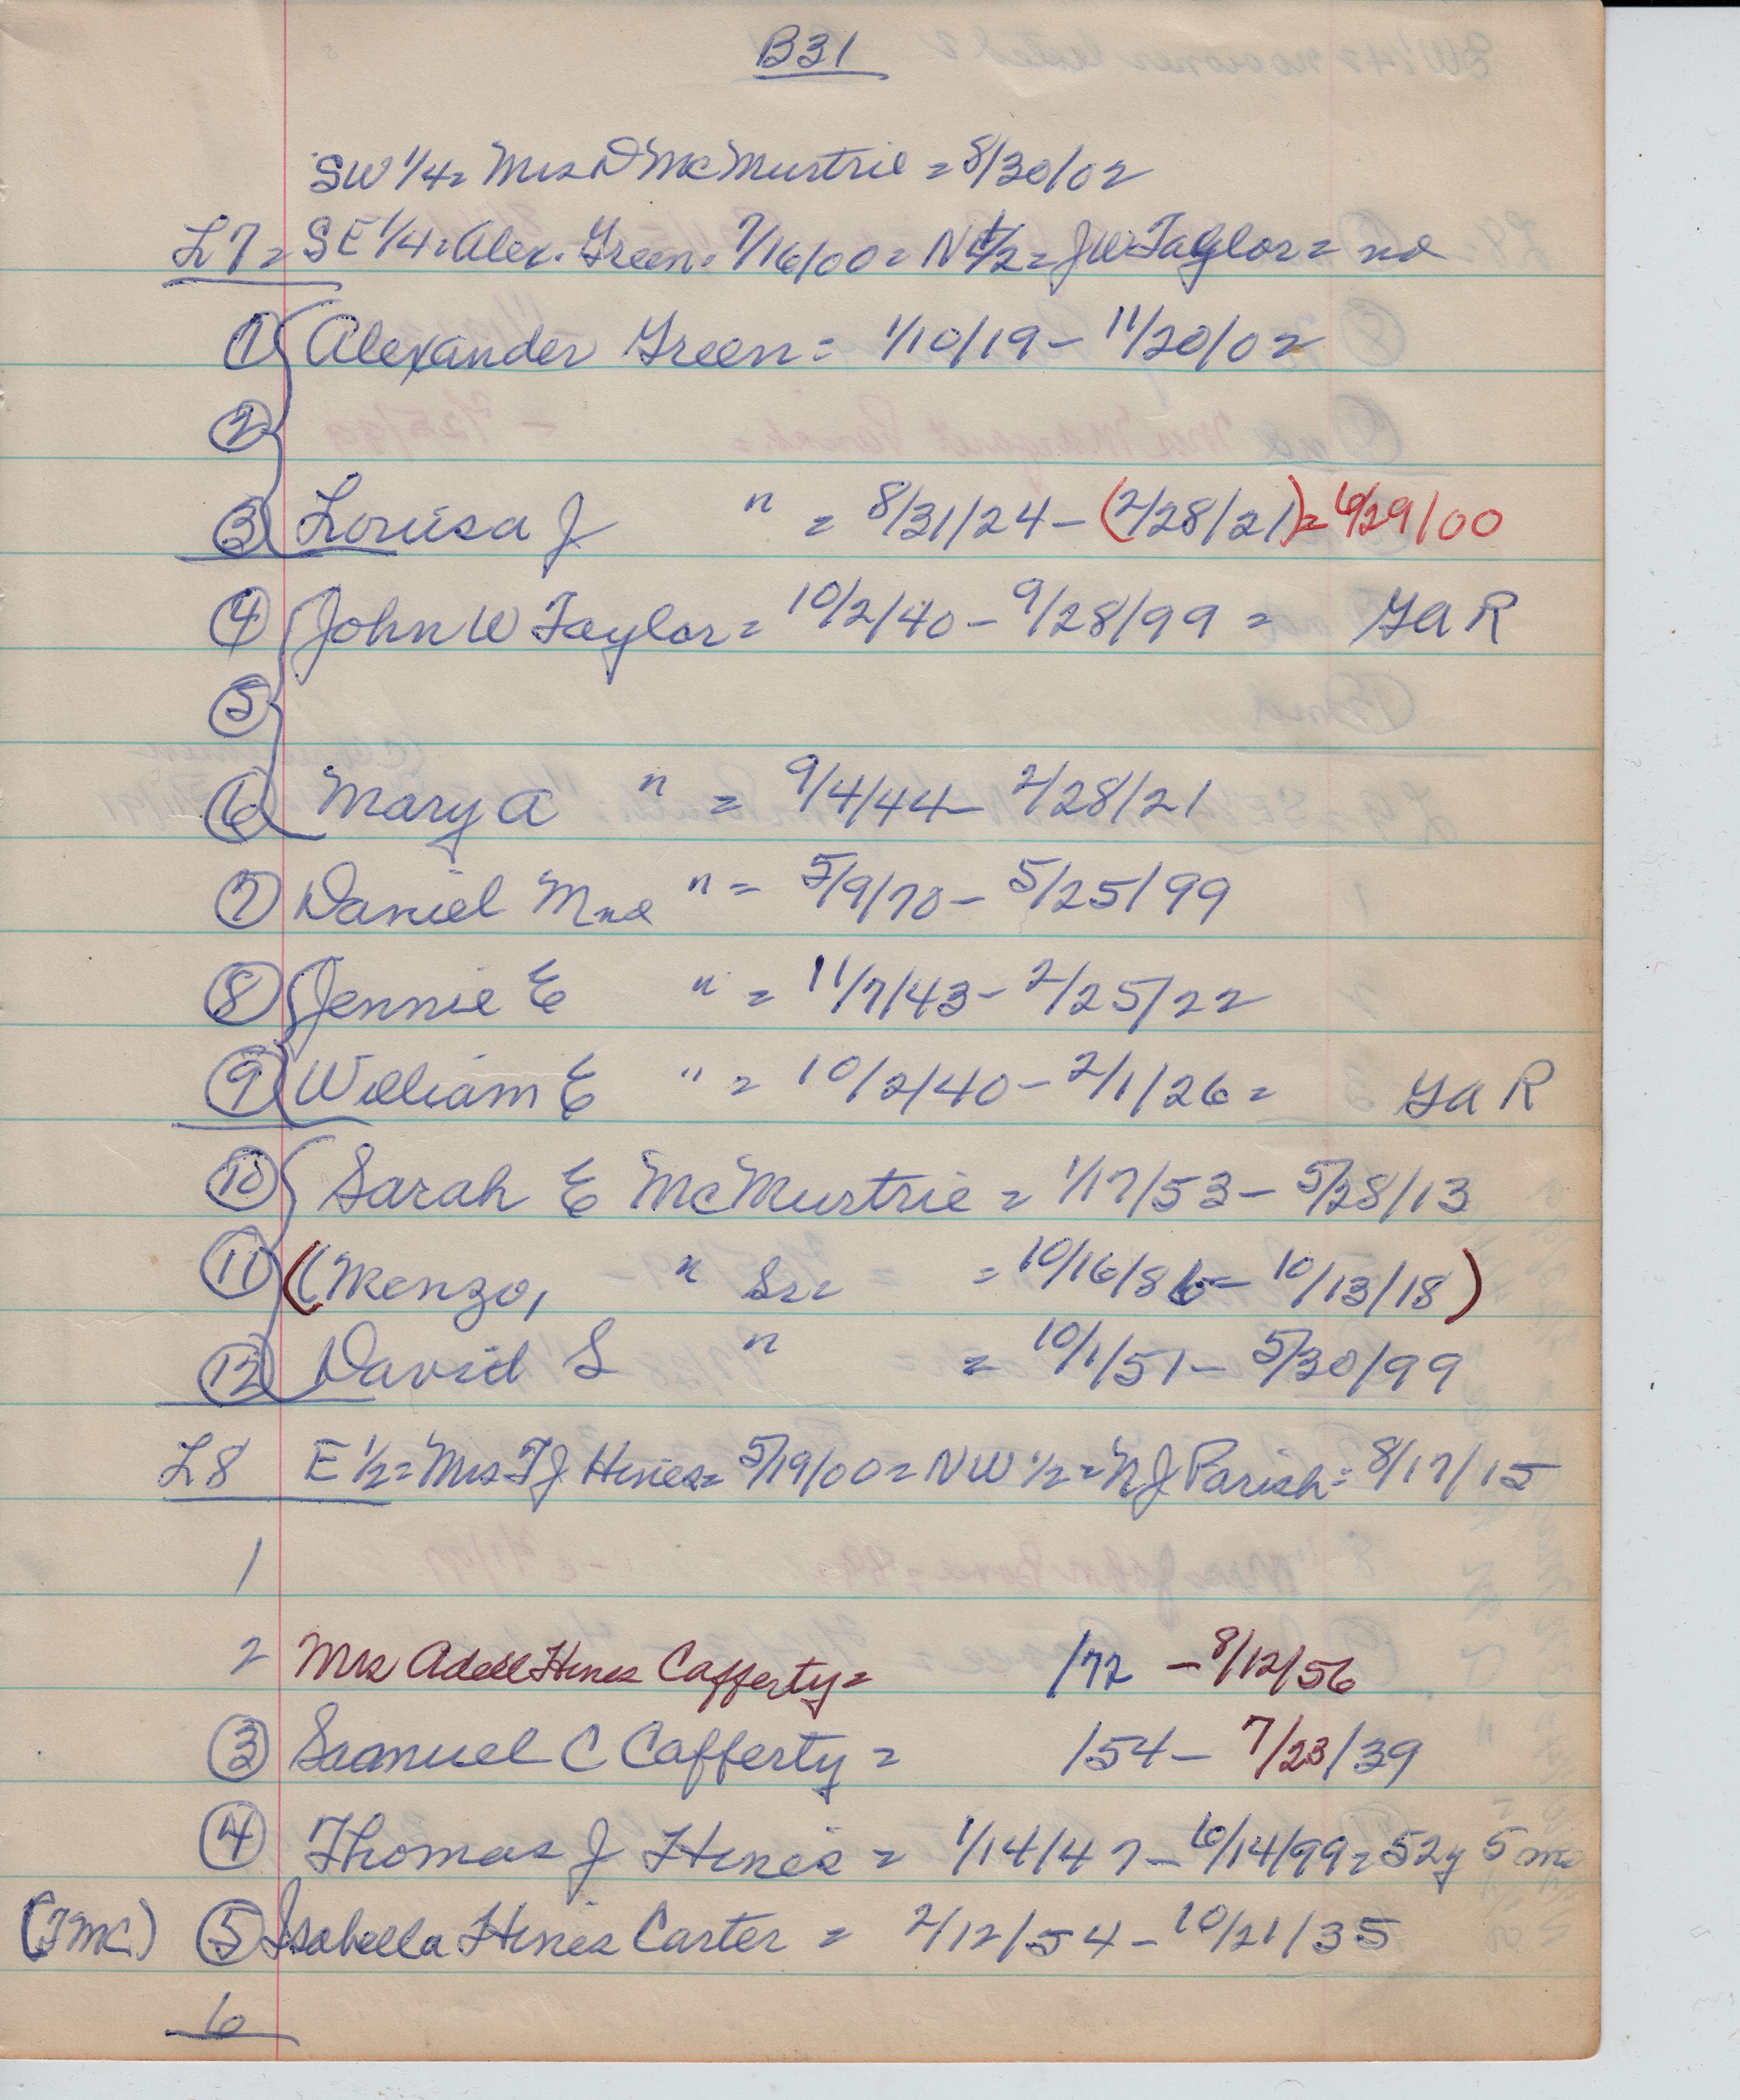 B31
SW 1/4 = Mrs D McMurtrie = 8/30/02
L7 = SE 1/4 = Alex. Green = 7/16/00 = N 1/2 = JW Taylor = no
1 Alexander Green = 1/10/19 - 11/20/02
2
3 Louisa J " = 8/31/24 - (2/28/21) = 6/29/00
4 John W Taylor = 10/2/40 - 9/28/99 = GAR
5
6 Mary A " = 9/4/44 - 2/28/21
7 Daniel M " = 5/9/70 - 5/25/99
8 Jennie E " = 11/7/43 - 2/25/22
9 William E " = 10/2/40 - 2/1/26 = GAR
10 Sarah E McMurtrie = 1/17/53 - 5/28/13
11 (Menzo, " Sr = 10/16/86 - 10/13/18)
12 David S " = 10/1/51 - 5/30/99
L8 E 1/2 = Mrs TJ Hines = 5/19/00 = NW 1/2 = NJ Parish = 8/17/15
1
2 Mrs Adell Hines Cafferty = /72 - 8/12/56
3 Samuel C Cafferty = /54 - 7/23/39
4 Thomas J Hines = 1/14/47 - 6/14/99 = 52y 5 mo
(JMC) 5 Isabella Hines Carter = 2/12/54 - 10/21/35
6